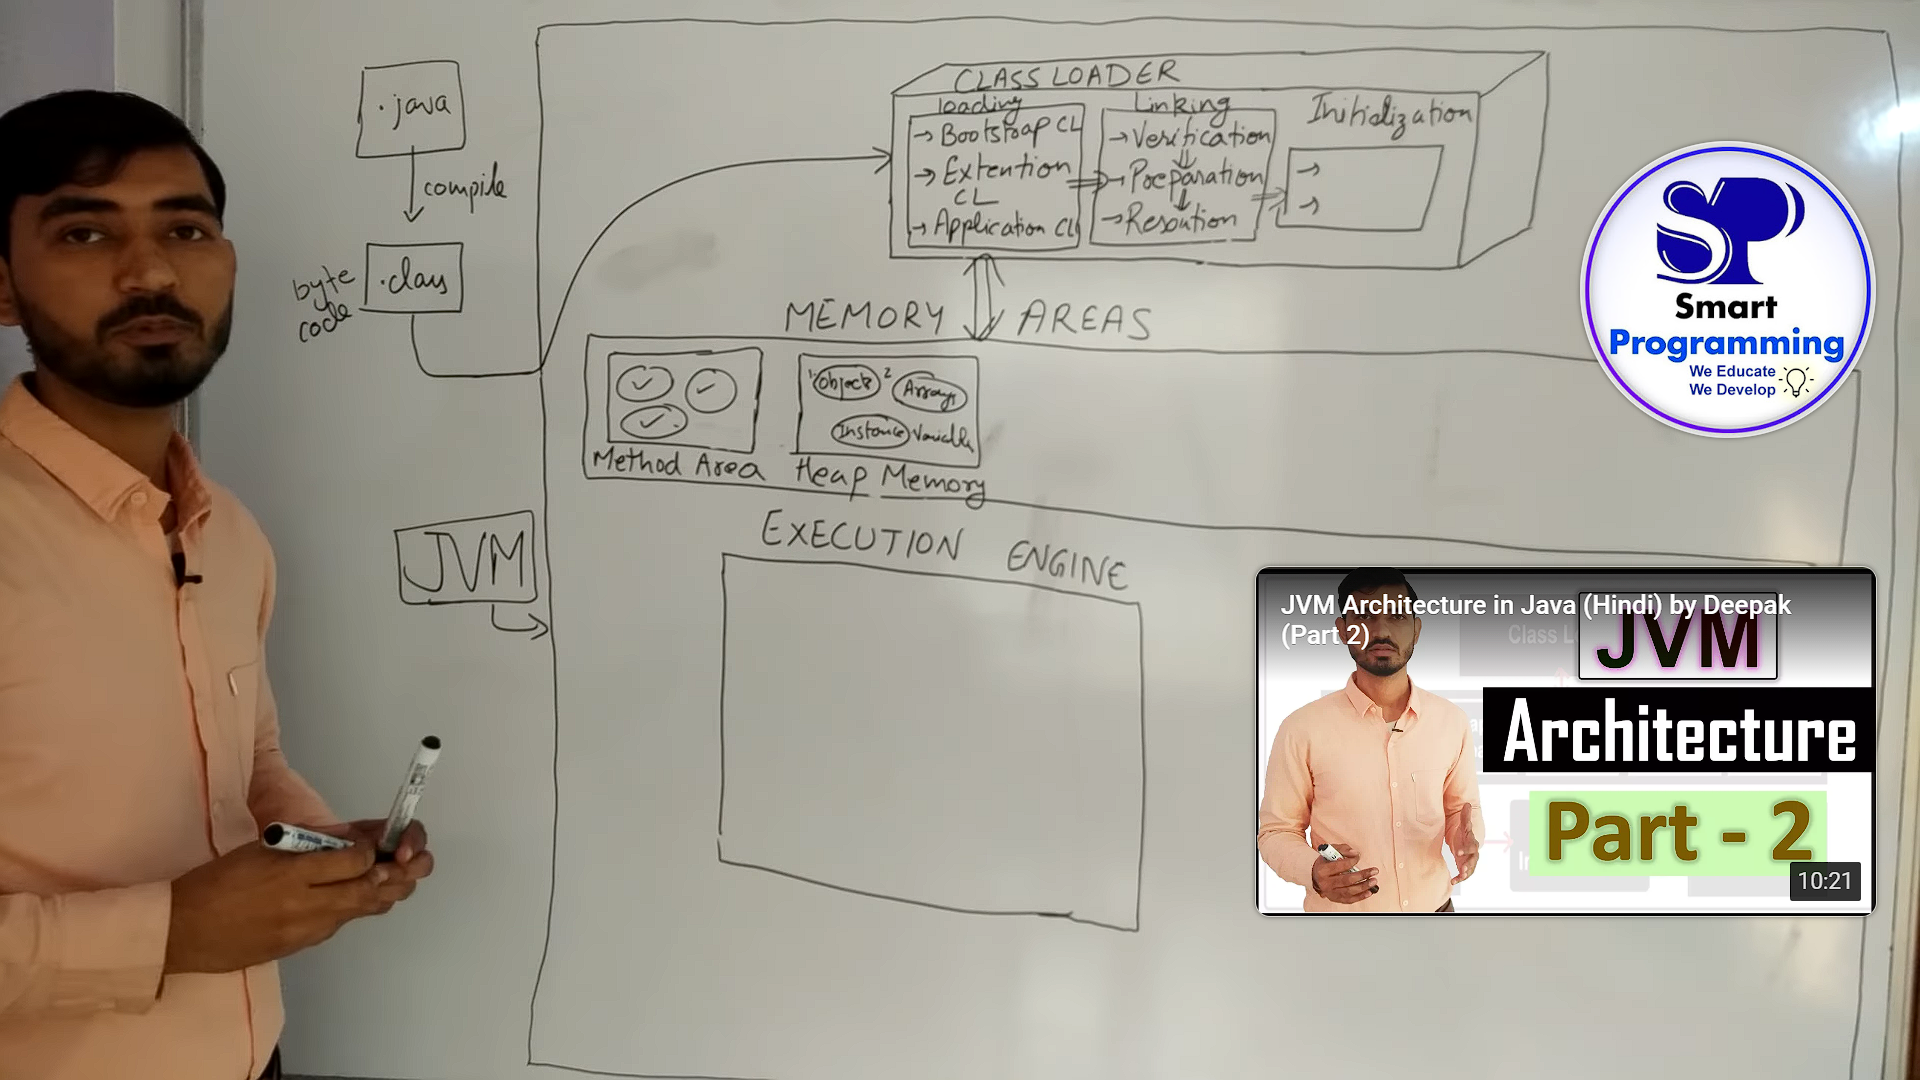 .java
compile
byte
code
.class
JVM
CLASS LOADER
loading
→ Bootstrap CL
→ Extention
CL
→ Application CL
Linking
→ Verification
→ Preparation
→ Resoution
Initialization
→
→
MEMORY AREAS
1. Objects
2 Arrays
Instance Variable
Method Area
Heap Memory
EXECUTION ENGINE
SP
Smart
Programming
We Educate
We Develop
JVM Architecture in Java (Hindi) by Deepak
(Part 2)
JVM
Architecture
Part - 2
10:21